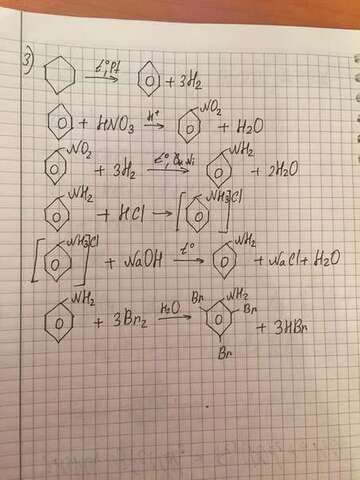 3) t°, Pt → + 3H₂
+ HNO₃ H⁺ → NO₂ + H₂O
NO₂ + 3H₂ t°, Ni → NH₂ + 2H₂O
NH₂ + HCl → [ NH₃ ] Cl
[ NH₃ ] Cl + NaOH t° → NH₂ + NaCl + H₂O
NH₂ + 3Br₂ H₂O → Br NH₂ Br Br + 3HBr